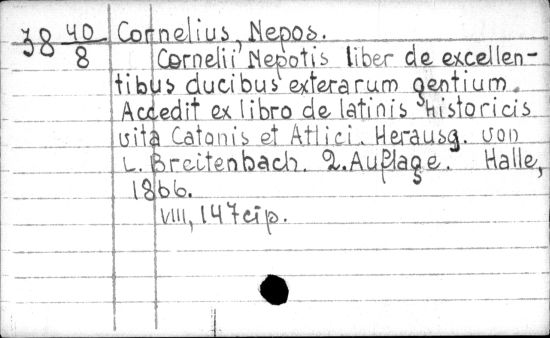 38 40/8 Cornelius, Nepos.
Cornelii Nepotis liber de excellen-
tibus ducibus exterarum gentium.
Accedit ex libro de latinis historicis
vita Catonis et Attici. Herausg. von
L. Breitenbach. 2. Auflage. Halle,
1866.
VIII, 147 стр.